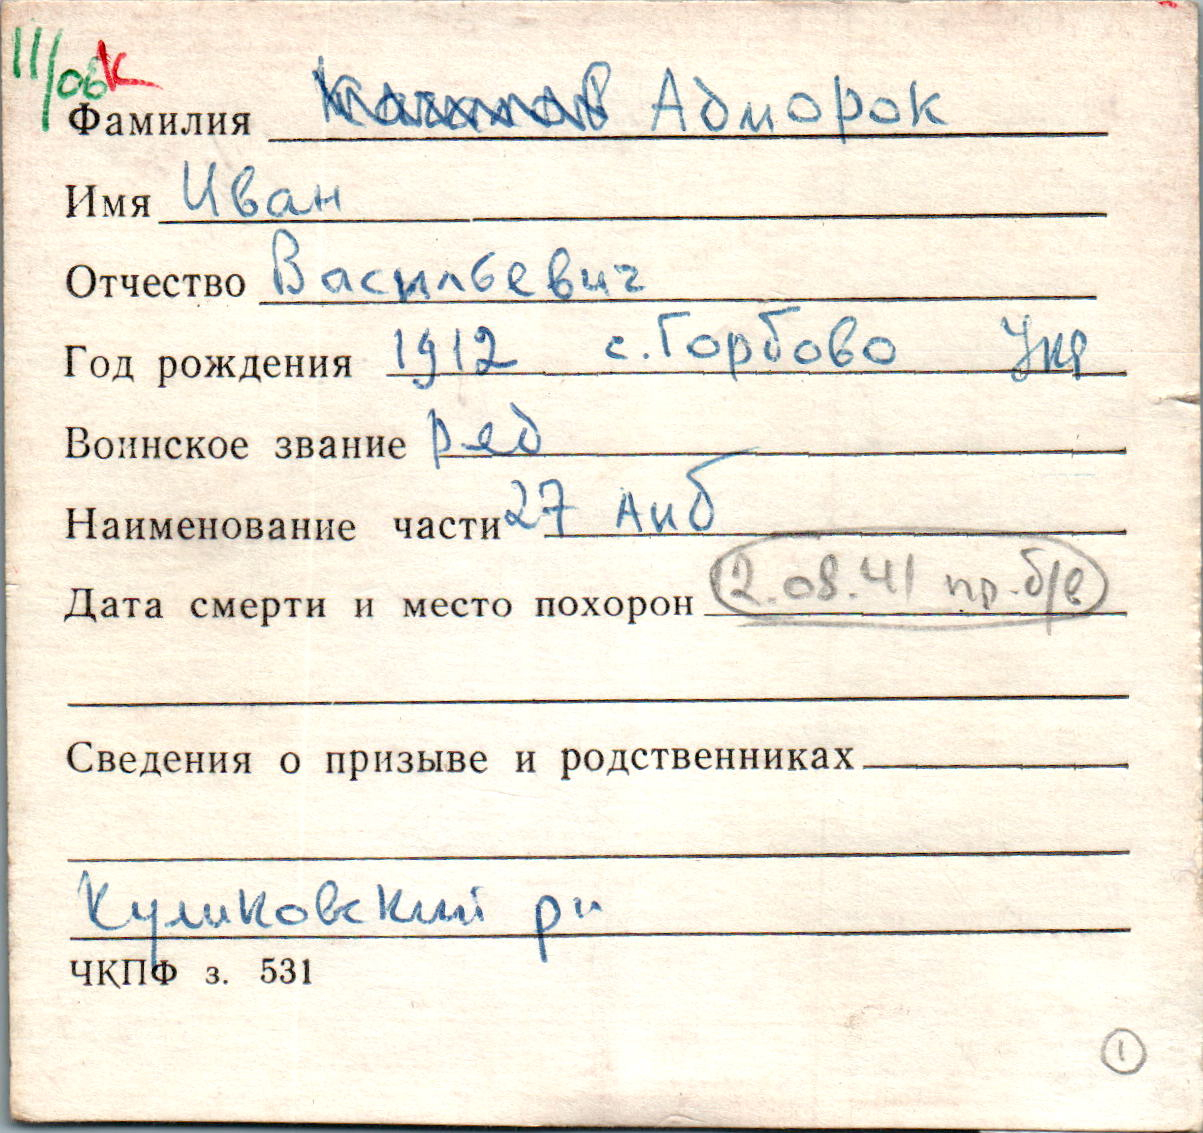 11/06 К
Фамилия Адморок
Имя Иван
Отчество Васильевич
Год рождения 1912 с. Горбово Укр
Воинское звание ряд
Наименование части 27 Апб
Дата смерти и место похорон 12.08.41 пр. б/в
Сведения о призыве и родственниках
Куликовский рн
ЧКПФ з. 531
1